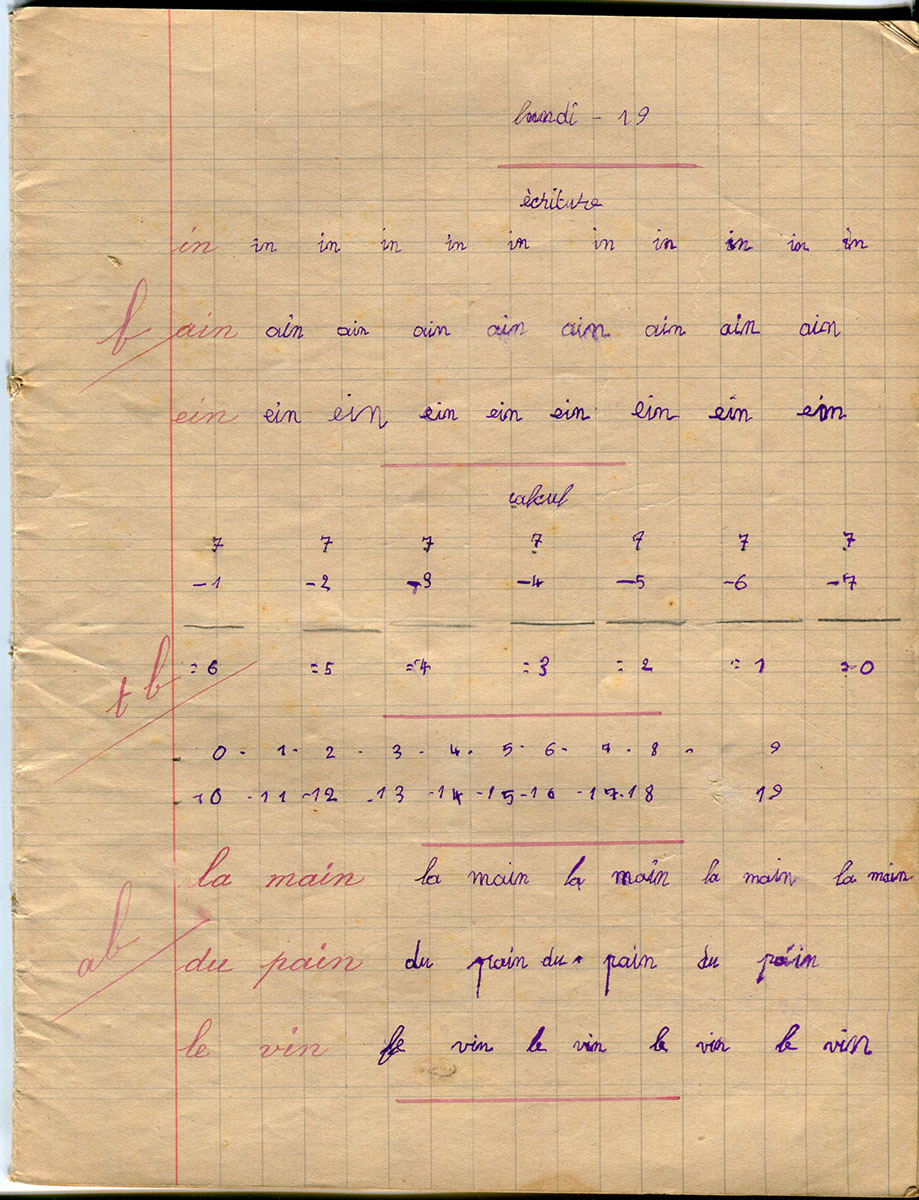 lundi - 19
écriture
in in in in in in in in in in in
b ain ain ain ain ain ain ain ain ain
ein ein ein ein ein ein ein ein ein
calcul
7 7 7 7 7 7 7
-1 -2 -3 -4 -5 -6 -7
tb =6 =5 =4 =3 =2 =1 =0
0 - 1 - 2 - 3 - 4 - 5 - 6 - 7 - 8 - 9
10 - 11 - 12 - 13 - 14 - 15 - 16 - 17 - 18 19
la main la main la main la main la main
ab du pain du pain du pain du pain
le vin le vin le vin le vin le vin